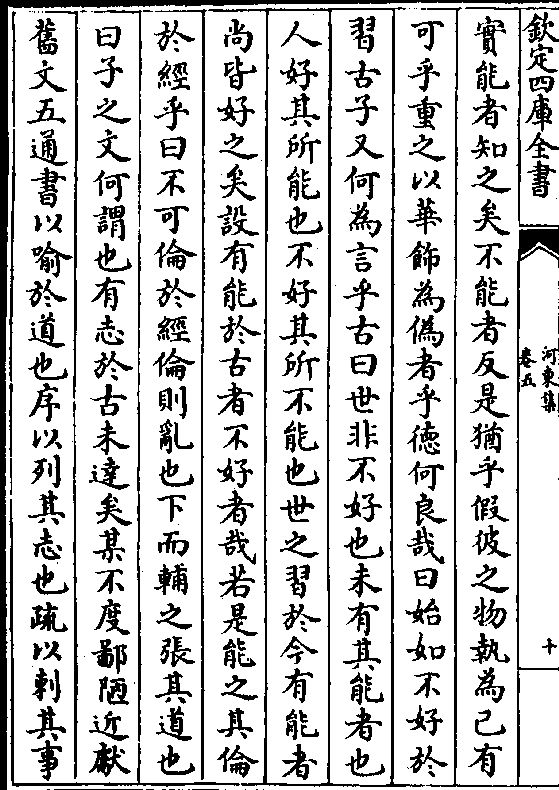 欽定四庫全書
河東集
卷五
十
實能者知之矣不能者反是猶乎假彼之物執為己有
可乎重之以華飾為偽者乎德何良哉曰始如不好於
習古子又何為言乎古曰世非不好也未有其能者也
人好其所能也不好其所不能也世之習於今有能者
尚皆好之矣設有能於古者不好者哉若是能之其倫
於經乎曰不可倫於經倫則亂也下而輔之張其道也
曰子之文何謂也有志於古未達矣某不度鄙陋近獻
舊文五通書以喻於道也序以列其志也疏以刺其事